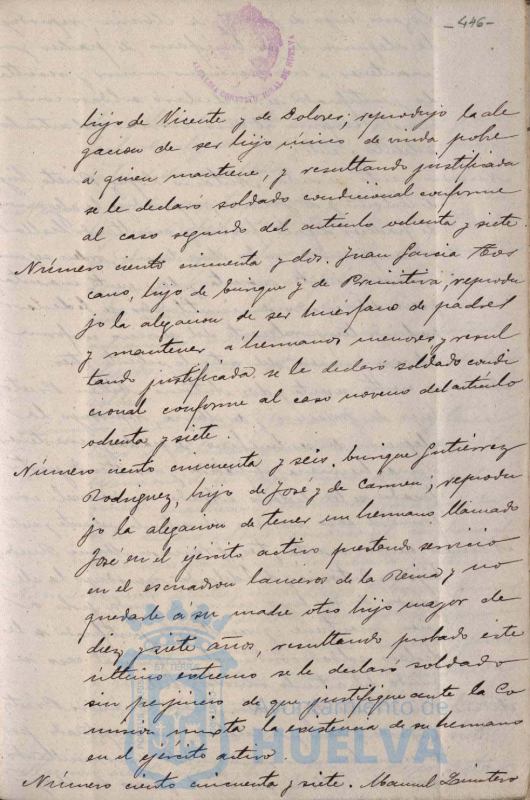 -446-
ALCALDIA CONSTITUCIONAL DE HUELVA
hijo de Vicente y de Dolores; reprodujo la ale
gacion de ser hijo único de viuda pobre
á quien mantiene, y resultando justificada
se le declaró soldado condicional conforme
al caso segundo del artículo ochenta y siete.
Número ciento cincuenta y dos. Juan Garcia
cano, hijo de Enrique y de Primitiva; reprodu
jo la alegacion de ser huérfano de padres
y mantener á hermanos menores, y resul
tando justificada se le declaró soldado condi
cional conforme al caso noveno del artículo
ochenta y siete.
Número ciento cincuenta y seis. Enrique Gutiérrez
Rodriguez, hijo de José y de Carmen; reprodu
jo la alegacion de tener un hermano llamado
José en el ejército activo prestando servicio
en el escuadron lanceros de la Reina y no
quedarle á su madre otro hijo mayor de
diez y siete años, resultando probado este
último extremo se le declaró soldado
sin perjuicio de que justifique ante la Co
mision mixta la existencia de su hermano
en el ejército activo.
Número ciento cincuenta y siete. Manuel Quintero
Ayuntamiento de
HUELVA